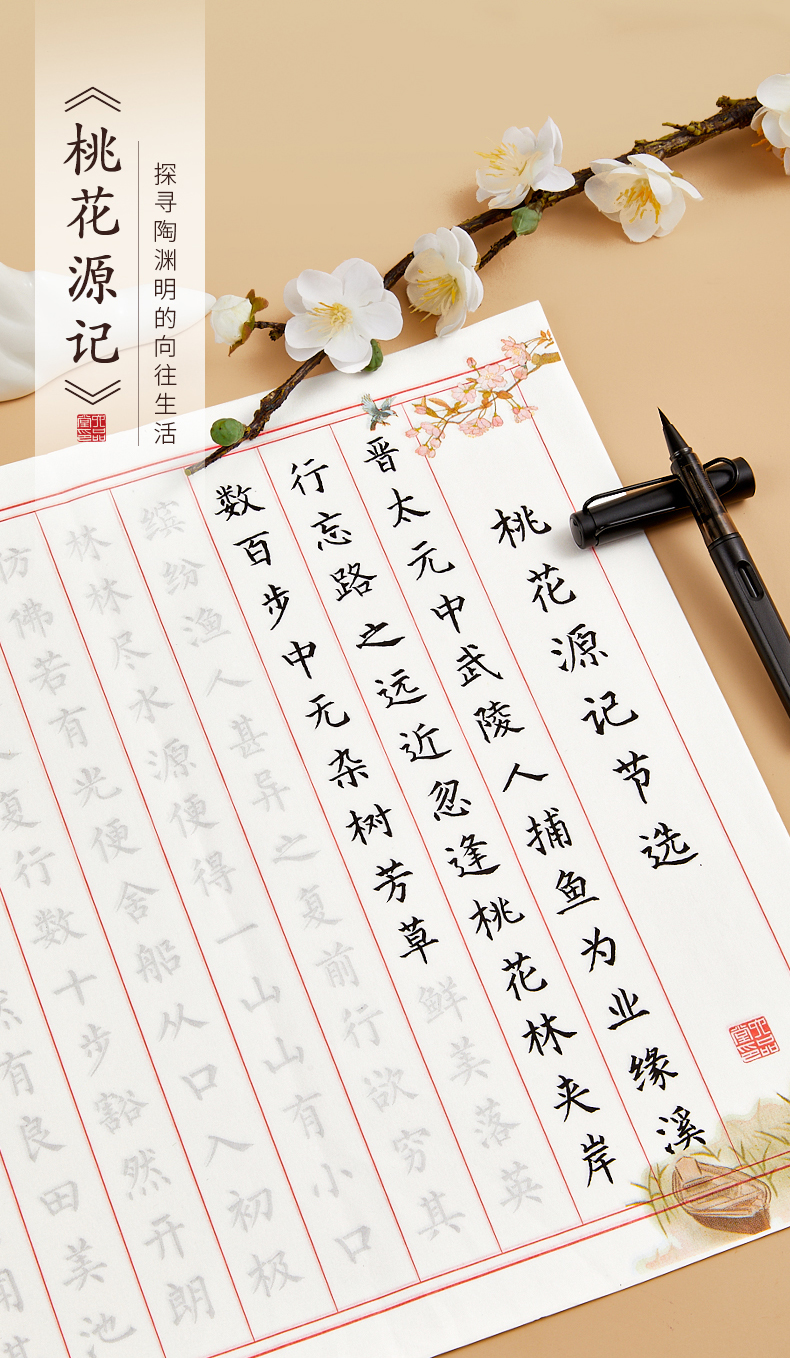 《桃花源记》
探寻陶渊明的向往生活
桃花源记节选
晋太元中武陵人捕鱼为业缘溪
行忘路之远近忽逢桃花林夹岸
数百步中无杂树芳草鲜美落英
缤纷渔人甚异之复前行欲穷其
林林尽水源便得一山山有小口
仿佛若有光便舍船从口入初极
人复行数十步豁然开朗
然有良田美池
闻其